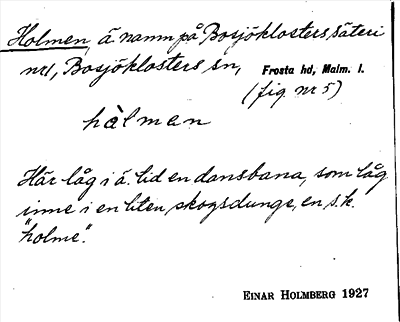 Holmen, ä. namn på Bosjöklosters säteri
nr 1, Bosjöklosters sn, Frosta hd, Malm. l.
(fig. nr 5)
hàlmen
Här låg i ä. tid en dansbana, som låg
inne i en liten skogsdunge, en s.k.
"holme".
EINAR HOLMBERG 1927